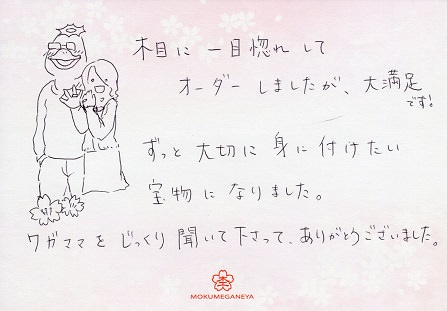 木目に 一目惚れ して
オーダー しましたが、大満足
です!
ずっと 大切に 身に 付けたい
宝物に なりました。
ワガママを じっくり 聞いて下さって、ありがとうございました。
MOKUMEGANEYA